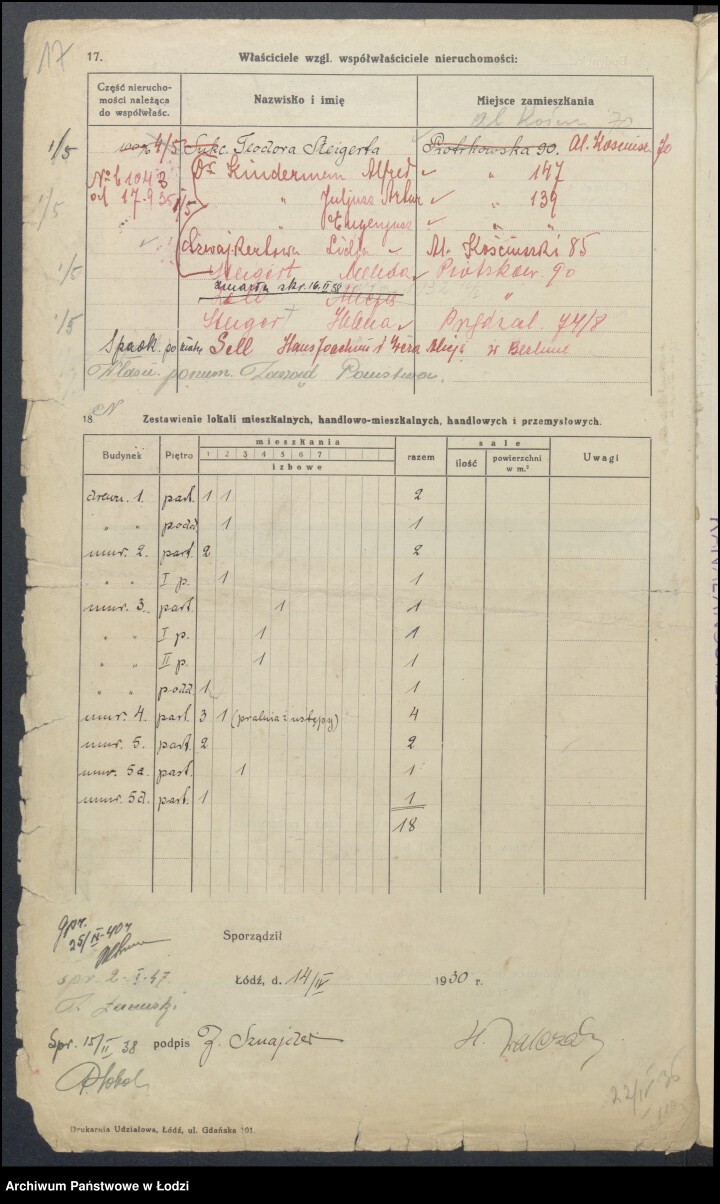 17
17. Właściciele wzgl. współwłaściciele nieruchomości:
Część nierucho-
mości należąca
do współwłaśc.
Nazwisko i imię
Miejsce zamieszkania
1/5 4/5 Sukc. Teodora Steigerta Piotrkowska 90. Al. Kościusz. 70
№ 61043 Dr Kinderman Alfred " 147
od 17.9.35 1/5 " Juljusz Artur " 139
1/5 " Eugenjusz " "
Lidja Al. Kościuszki 85
1/5 Steigert Piotrkow. 90
zmarła 16.II 38 "
1/5 Steigert Helena Pogdzal. 74/8
Spadk. Sell Hans Joachim i Wera Alicja w Berlinie
Zarząd Państwow.
18. Zestawienie lokali mieszkalnych, handlowo-mieszkalnych, handlowych i przemysłowych.
Budynek Piętro mieszkania razem sale Uwagi
1 2 3 4 5 6 7
izbowe
ilość powierzchni
w m.²
drewn. 1. part. 1 1 2
" " podd. 1 1
mur. 2. part. 2 2
" " I p. 1 1
mur. 3. part. 1 1
" " I p. 1 1
" " II p. 1 1
" " podd. 1 1
mur. 4. part. 3 1 (pralnia i ustępy) 4
mur. 5. part. 2 2
mur. 5a. part. 1 1
mur. 5d. part. 1 1
18
25/IV-40r
Sporządził
spr. 2-I-47
Łódź, d. 14/IV 1930 r.
Spr. 15/II 38 podpis Sznajder
22/IV 36
Drukarnia Udziałowa, Łódź, ul. Gdańska 101.
Archiwum Państwowe w Łodzi